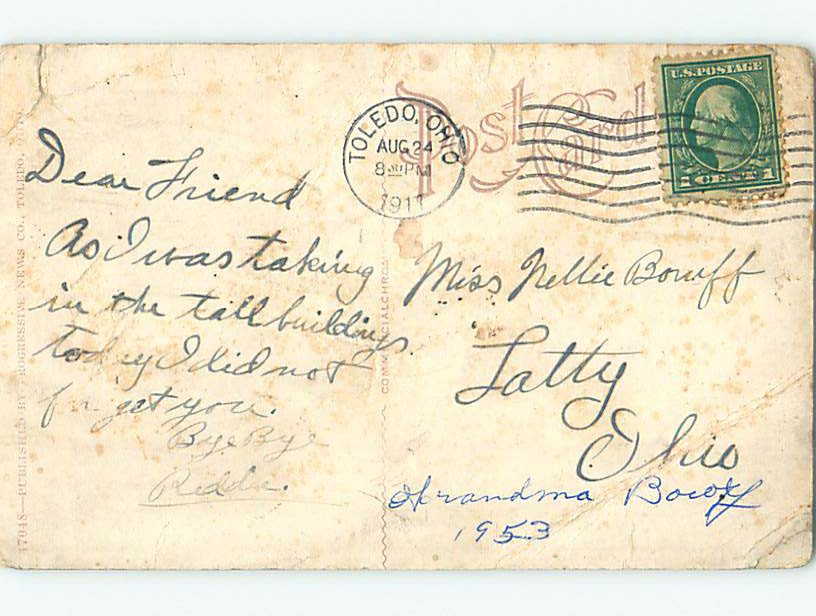 Post Card
U.S. POSTAGE
1 CENT 1
TOLEDO, OHIO
AUG 24
8 30 PM
1911
Dear Friend
As I was taking
in the tall buildings
today I did not
forget you.
Bye Bye
Miss Nellie Boruff
Latty
Ohio
Grandma
1953
COMMERCIALCHROME
47048—PUBLISHED BY PROGRESSIVE NEWS CO., TOLEDO, OHIO